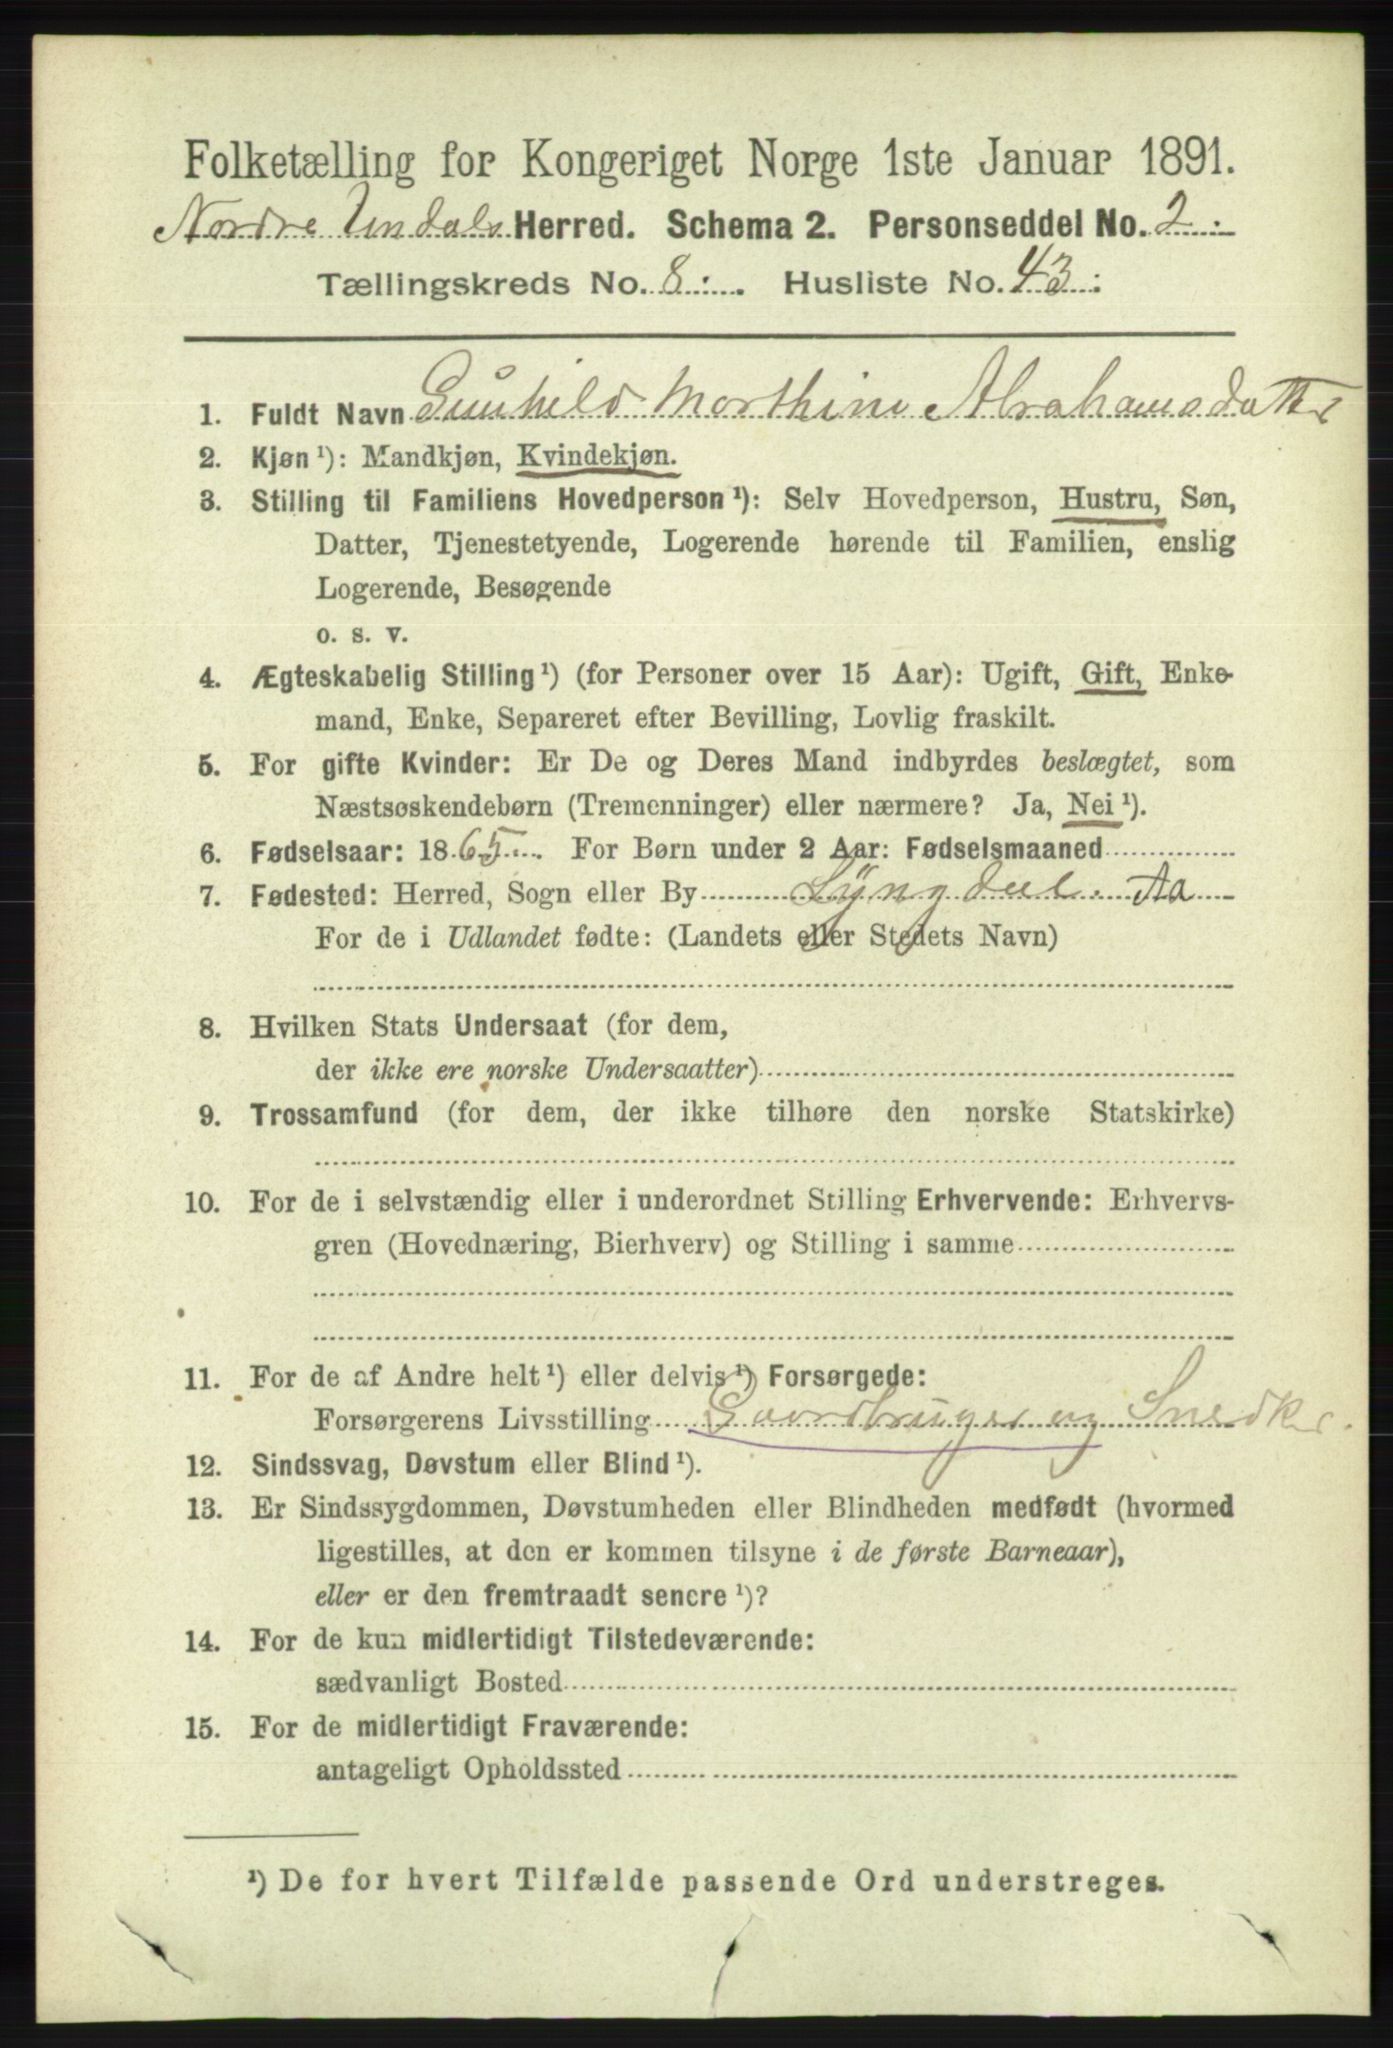 Folketælling for Kongeriget Norge 1ste Januar 1891.
Nordre Undals Herred. Schema 2. Personseddel No. 2.
Tællingskreds No. 8. Husliste No. 43.
1. Fuldt Navn Gunhild Morthine Abrahamsdatter
2. Kjøn ¹): Mandkjøn, Kvindekjøn.
3. Stilling til Familiens Hovedperson ¹): Selv Hovedperson, Hustru, Søn,
Datter, Tjenestetyende, Logerende hørende til Familien, enslig
Logerende, Besøgende
o. s. v.
4. Ægteskabelig Stilling ¹) (for Personer over 15 Aar): Ugift, Gift, Enke-
mand, Enke, Separeret efter Bevilling, Lovlig fraskilt.
5. For gifte Kvinder: Er De og Deres Mand indbyrdes beslægtet, som
Næstsøskendebørn (Tremenninger) eller nærmere? Ja, Nei ¹).
6. Fødselsaar: 1865. For Børn under 2 Aar: Fødselsmaaned
7. Fødested: Herred, Sogn eller By Lyngdal. Aa
For de i Udlandet fødte: (Landets eller Stedets Navn)
8. Hvilken Stats Undersaat (for dem,
der ikke ere norske Undersaatter)
9. Trossamfund (for dem, der ikke tilhøre den norske Statskirke)
10. For de i selvstændig eller i underordnet Stilling Erhvervende: Erhvervs-
gren (Hovednæring, Bierhverv) og Stilling i samme
11. For de af Andre helt ¹) eller delvis ¹) Forsørgede:
Forsørgerens Livsstilling Gaardbruger og Snedker.
12. Sindssvag, Døvstum eller Blind ¹).
13. Er Sindssygdommen, Døvstumheden eller Blindheden medfødt (hvormed
ligestilles, at den er kommen tilsyne i de første Barneaar),
eller er den fremtraadt senere ¹)?
14. For de kun midlertidigt Tilstedeværende:
sædvanligt Bosted
15. For de midlertidigt Fraværende:
antageligt Opholdssted
¹) De for hvert Tilfælde passende Ord understreges.